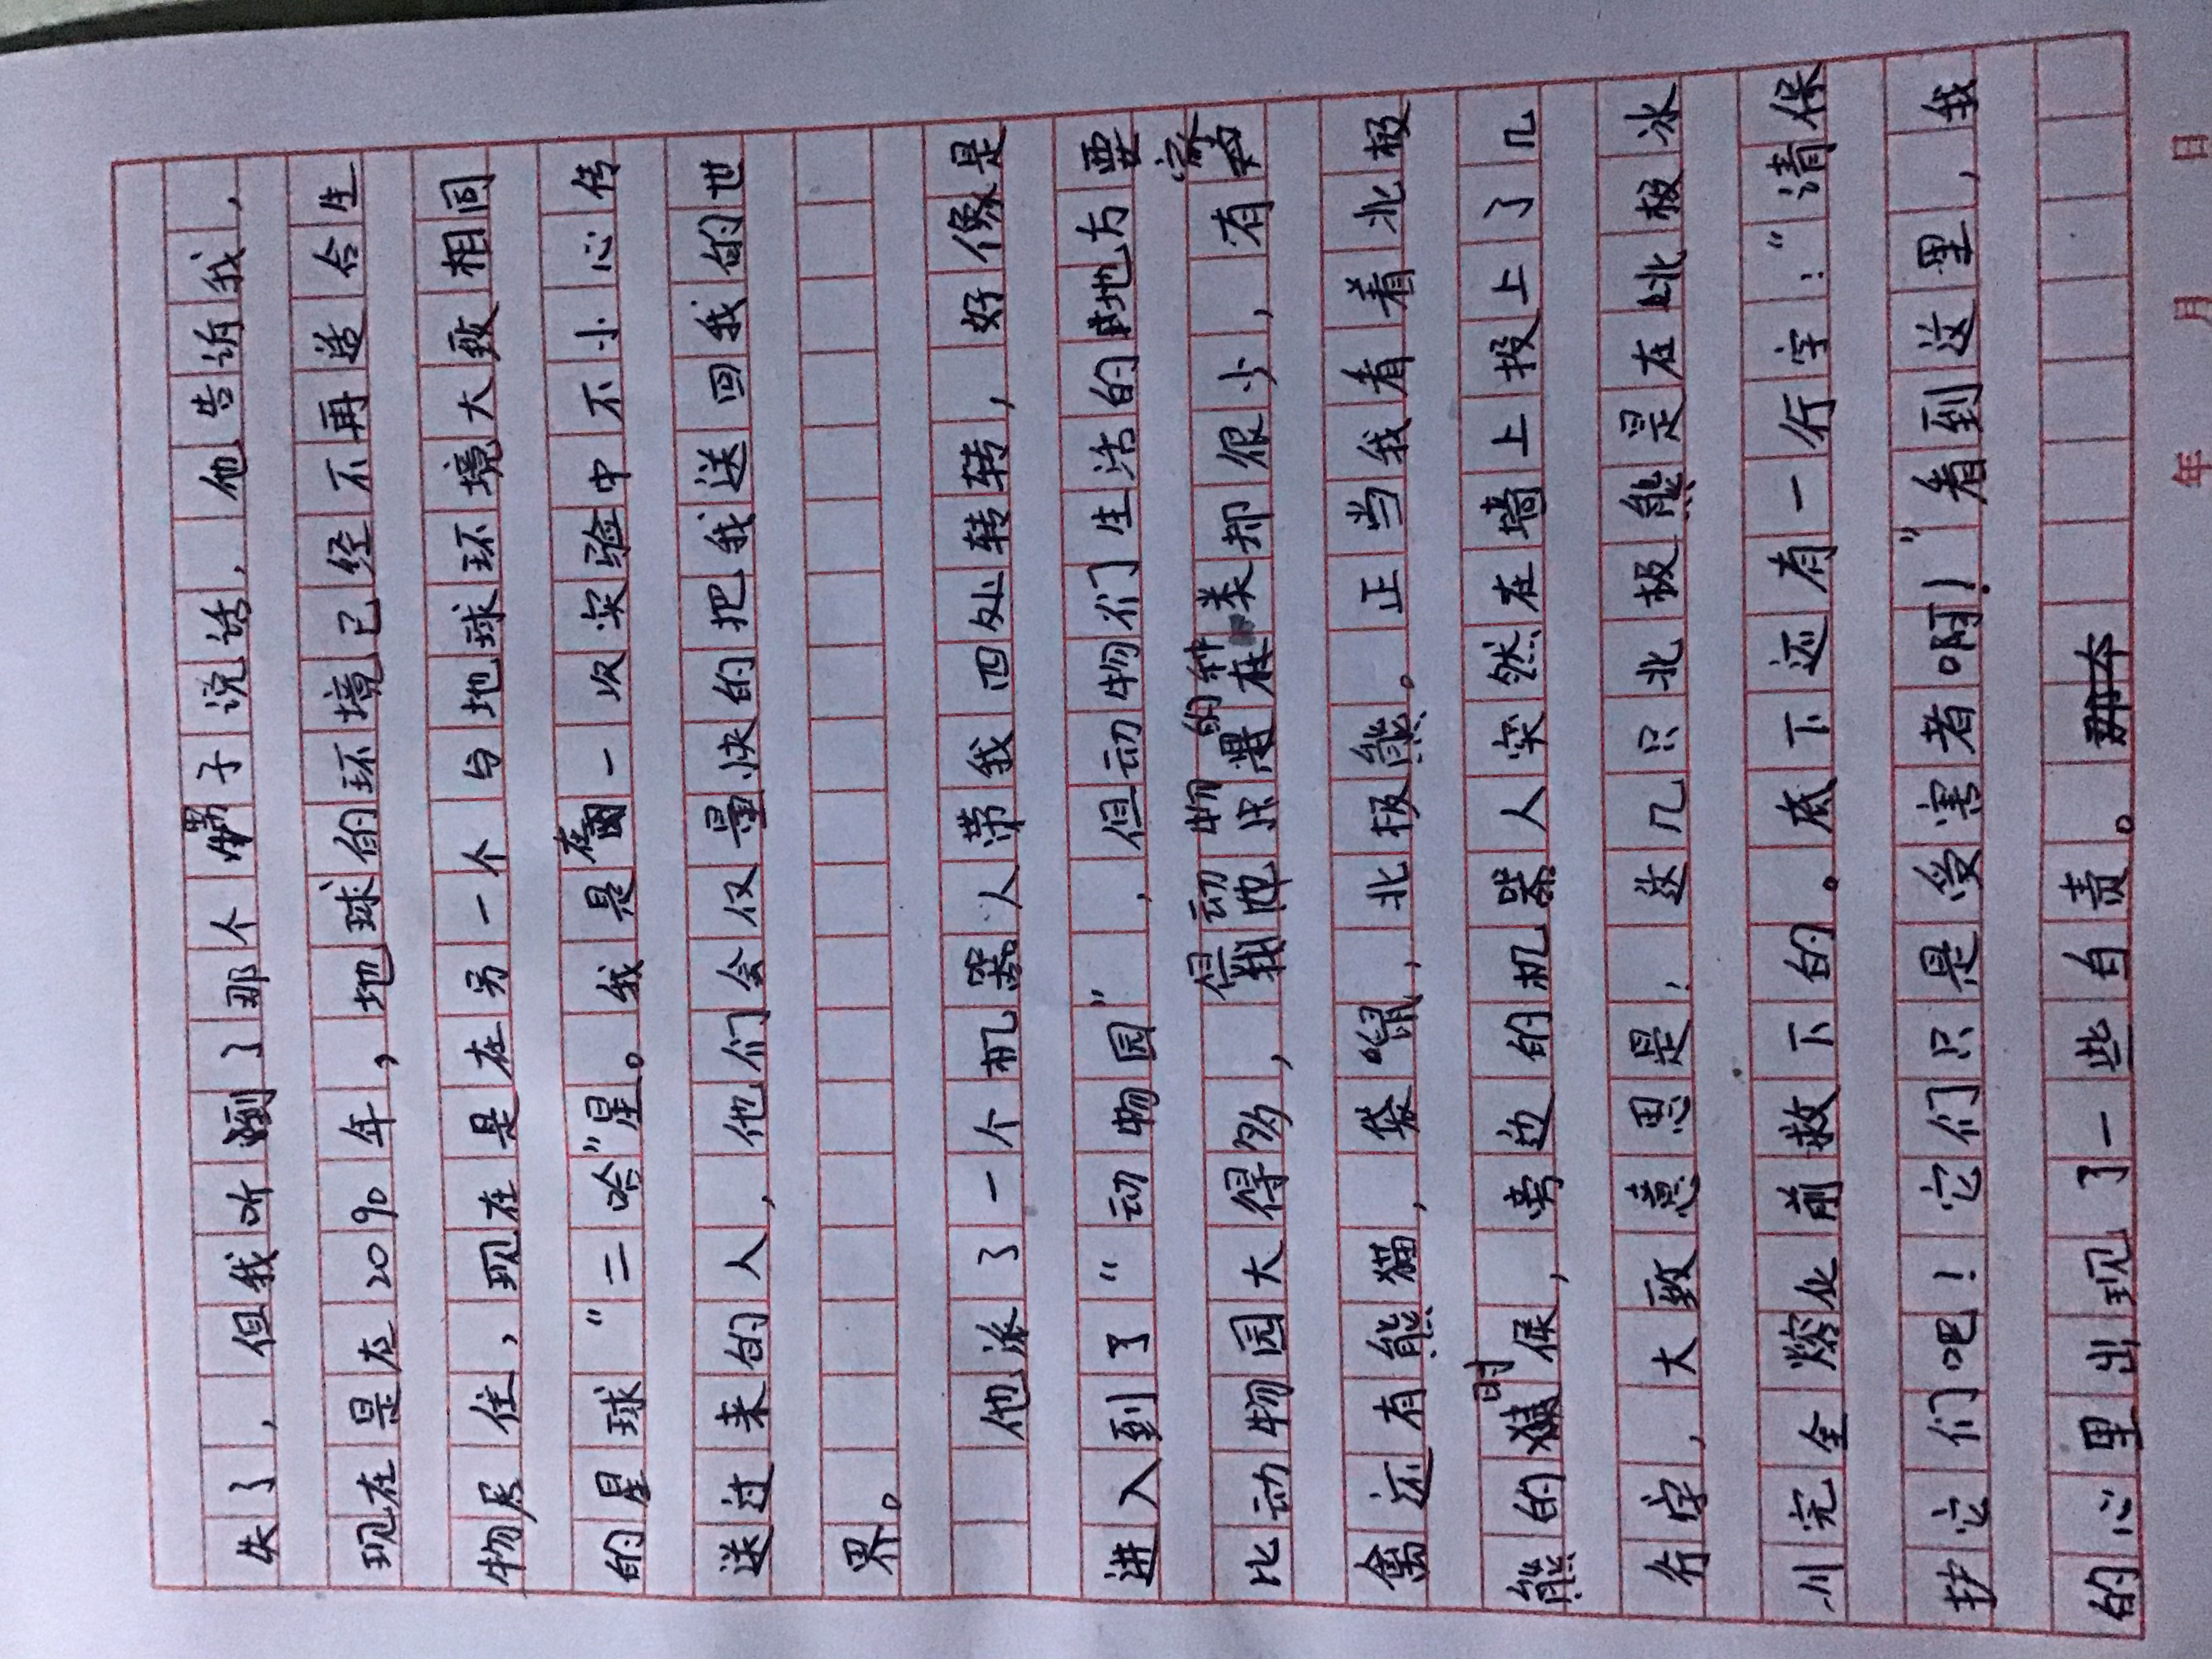 失了，但我听到了那个男子说话，他告诉我，
现在是在2090年，地球的环境已经不再适合生
物居住，现在是在另一个与地球环境大致相同
的星球“二哈”星。我是在一次实验中不小心传
送过来的人，他们会仅量快的把我送回我的世
界。
他派了一个机器人带我四处转转，好像是
进入到了“动物园”，但动物们生活的地方要
比动物园大得多，但动物的种类却很少，有家
禽还有熊猫，袋鼠，北极熊。正当我看着北极
熊的时候，旁边的机器人突然在墙上投上了几
行字，大致意思是：这几只北极熊是在北极冰
川完全熔化前救下的。底下还有一行字：“请保
护它们吧！它们只是受害者啊！”看到这里，我
的心里出现了一些自责。
年 月 日